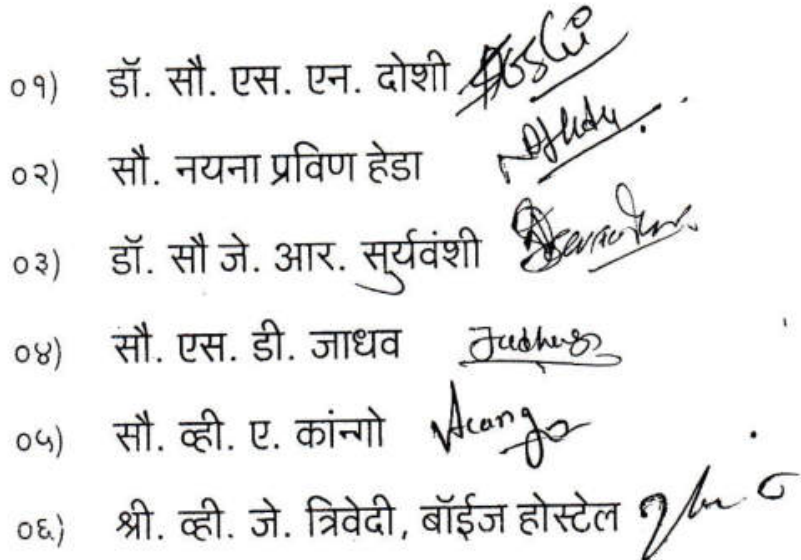 ०१) डॉ. सौ. एस. एन. दोशी
०२) सौ. नयना प्रविण हेडा
०३) डॉ. सौ जे. आर. सुर्यवंशी
०४) सौ. एस. डी. जाधव Jadhav
०५) सौ. व्ही. ए. कांन्गो
०६) श्री. व्ही. जे. त्रिवेदी, बॉईज होस्टेल